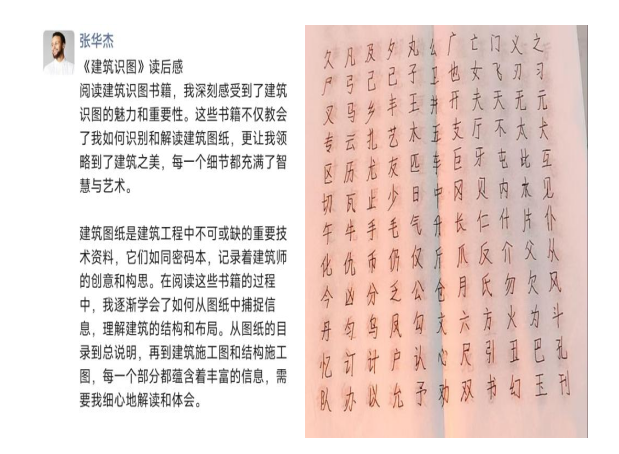 张华杰
《建筑识图》读后感
阅读建筑识图书籍，我深刻感受到了建筑
识图的魅力和重要性。这些书籍不仅教会
了我如何识别和解读建筑图纸，更让我领
略到了建筑之美，每一个细节都充满了智
慧与艺术。
建筑图纸是建筑工程中不可或缺的重要技
术资料，它们如同密码本，记录着建筑师
的创意和构思。在阅读这些书籍的过程
中，我逐渐学会了如何从图纸中捕捉信
息，理解建筑的结构和布局。从图纸的目
录到总说明，再到建筑施工图和结构施工
图，每一个部分都蕴含着丰富的信息，需
要我细心地解读和体会。
久 凡 及 夕 丸 么 广 亡 门 义 之
尸 弓 己 已 子 卫 也 女 飞 刃 习
叉 马 乡 丰 王 井 开 夫 天 无 元
专 云 扎 艺 木 五 支 厅 不 太 犬
区 历 尤 友 匹 车 巨 牙 屯 比 互
切 瓦 止 少 日 中 冈 贝 内 水 见
午 牛 手 毛 气 升 长 仁 什 片 仆
化 仇 币 仍 仅 斤 爪 反 介 父 从
今 凶 分 乏 公 仓 月 氏 勿 欠 风
丹 匀 乌 凤 勾 文 六 方 火 为 斗
忆 订 计 户 认 心 尺 引 丑 巴 孔
队 办 以 允 予 劝 双 书 幻 玉 刊